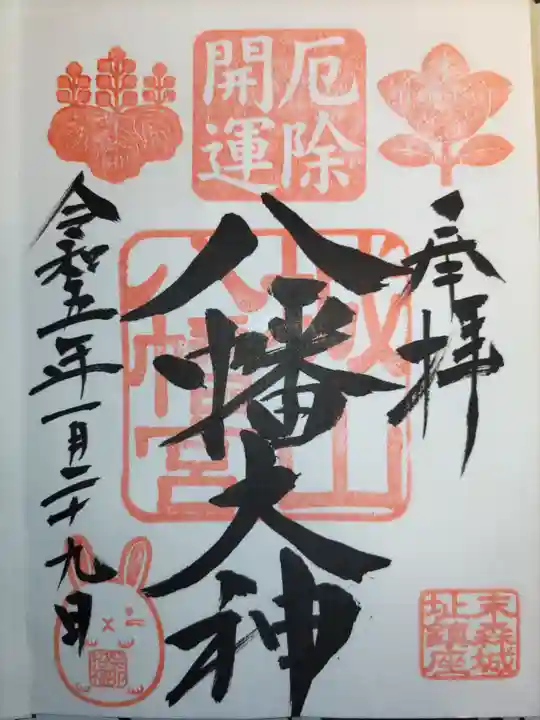 厄除
開運
奉拝
八幡大神
城山
八幡宮
令和五年一月二十九日
末森城
址鎮座